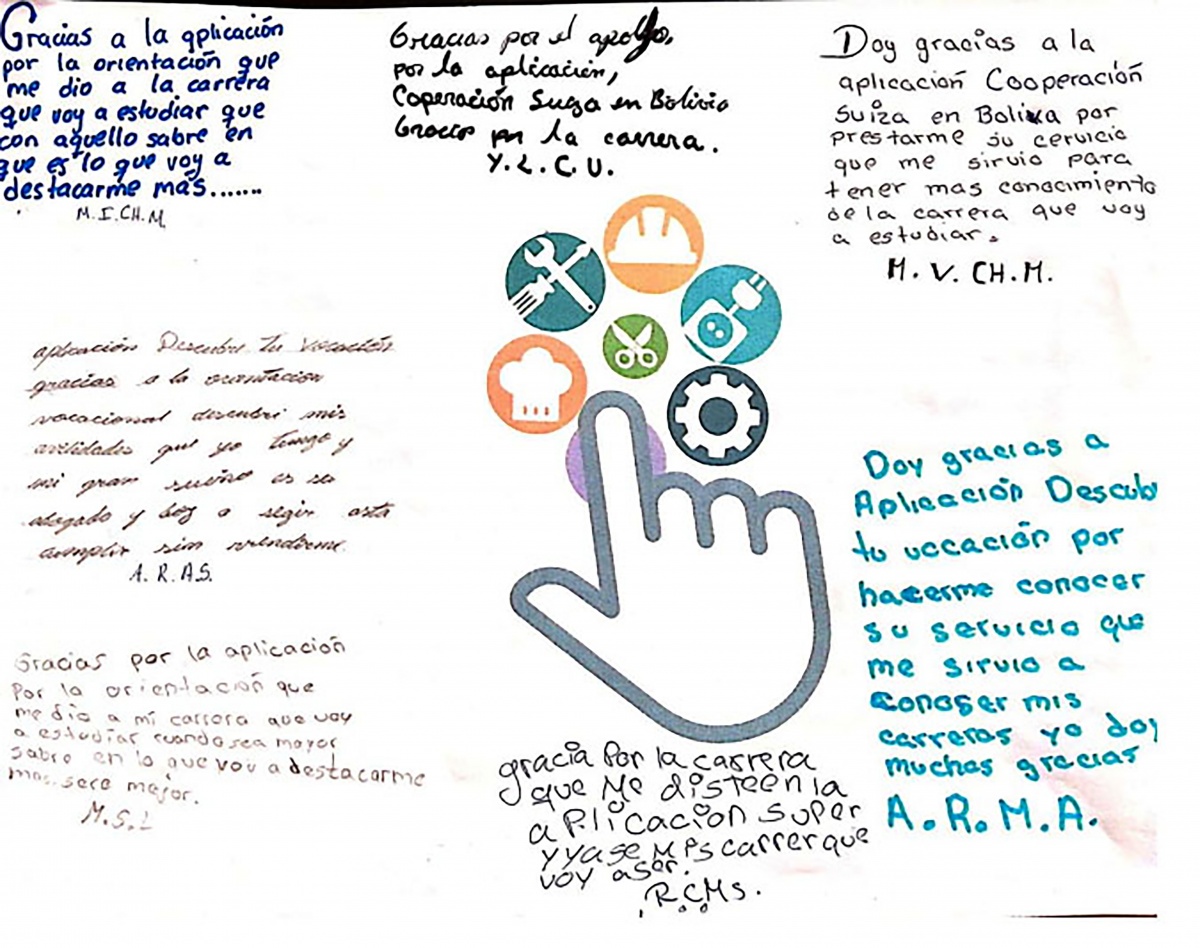 Gracias a la aplicación
por la orientación que
me dio a la carrera
que voy a estudiar que
con aquello sabre en
que es lo que voy a
destacarme más.......
M.I.CH.M.
Gracias por el apollo,
por la aplicación,
Coperación Suiza en Bolivia
Gracias por la carrera.
Y.L.C.U.
Doy gracias a la
aplicación Cooperación
Suiza en Bolivia por
prestarme su cervicio
que me sirvio para
tener mas conocimiento
de la carrera que voy
a estudiar.
M.V.CH.M.
aplicación Descubre Tu Vocación
gracias a la orientación
vocacional descubri mis
avilidades que yo tengo y
mi gran sueño es ser
abogado y boy a segir asta
cumplir sin rendirme.
A.R.A.S.
Gracias por la aplicación
Por la orientación que
me dio a mi carrera que voy
a estudiar cuando sea mayor
sabre en lo que voy a destacarme
mas.. sere mejor.
M.S.L
gracia Por la carrera
que Me disteen la
aPlicacion super
y yase Mis carrer que
voy aser.
R.C.Ms.
Doy gracias a
Aplicación Descub
tu vocación por
hacerme conocer
su servicio que
me sirvio a
Conoser mis
carreras yo doy
muchas gracias
A.R.M.A.